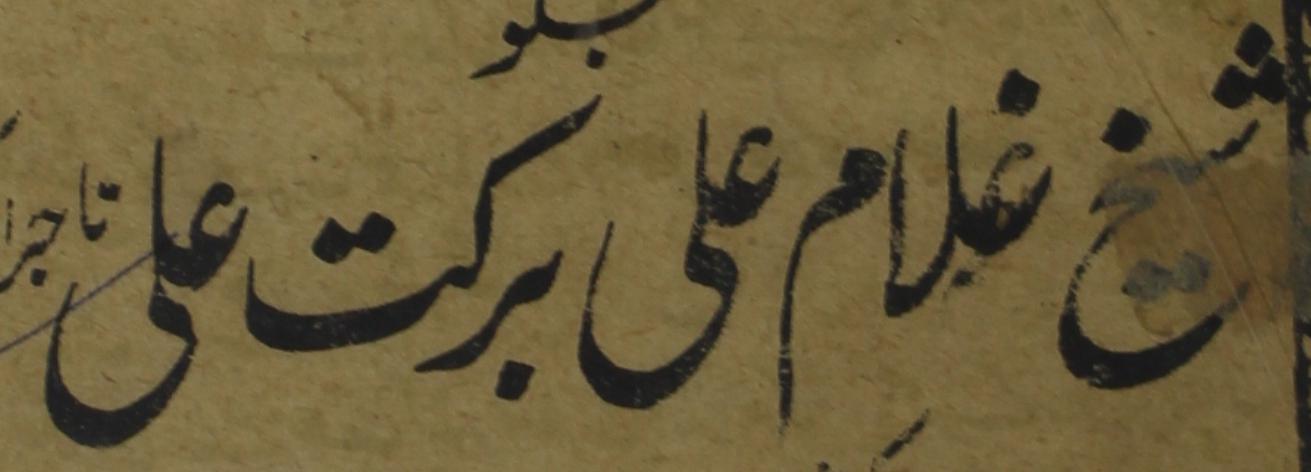 شیخ غلام علی برکت علی تاجرا